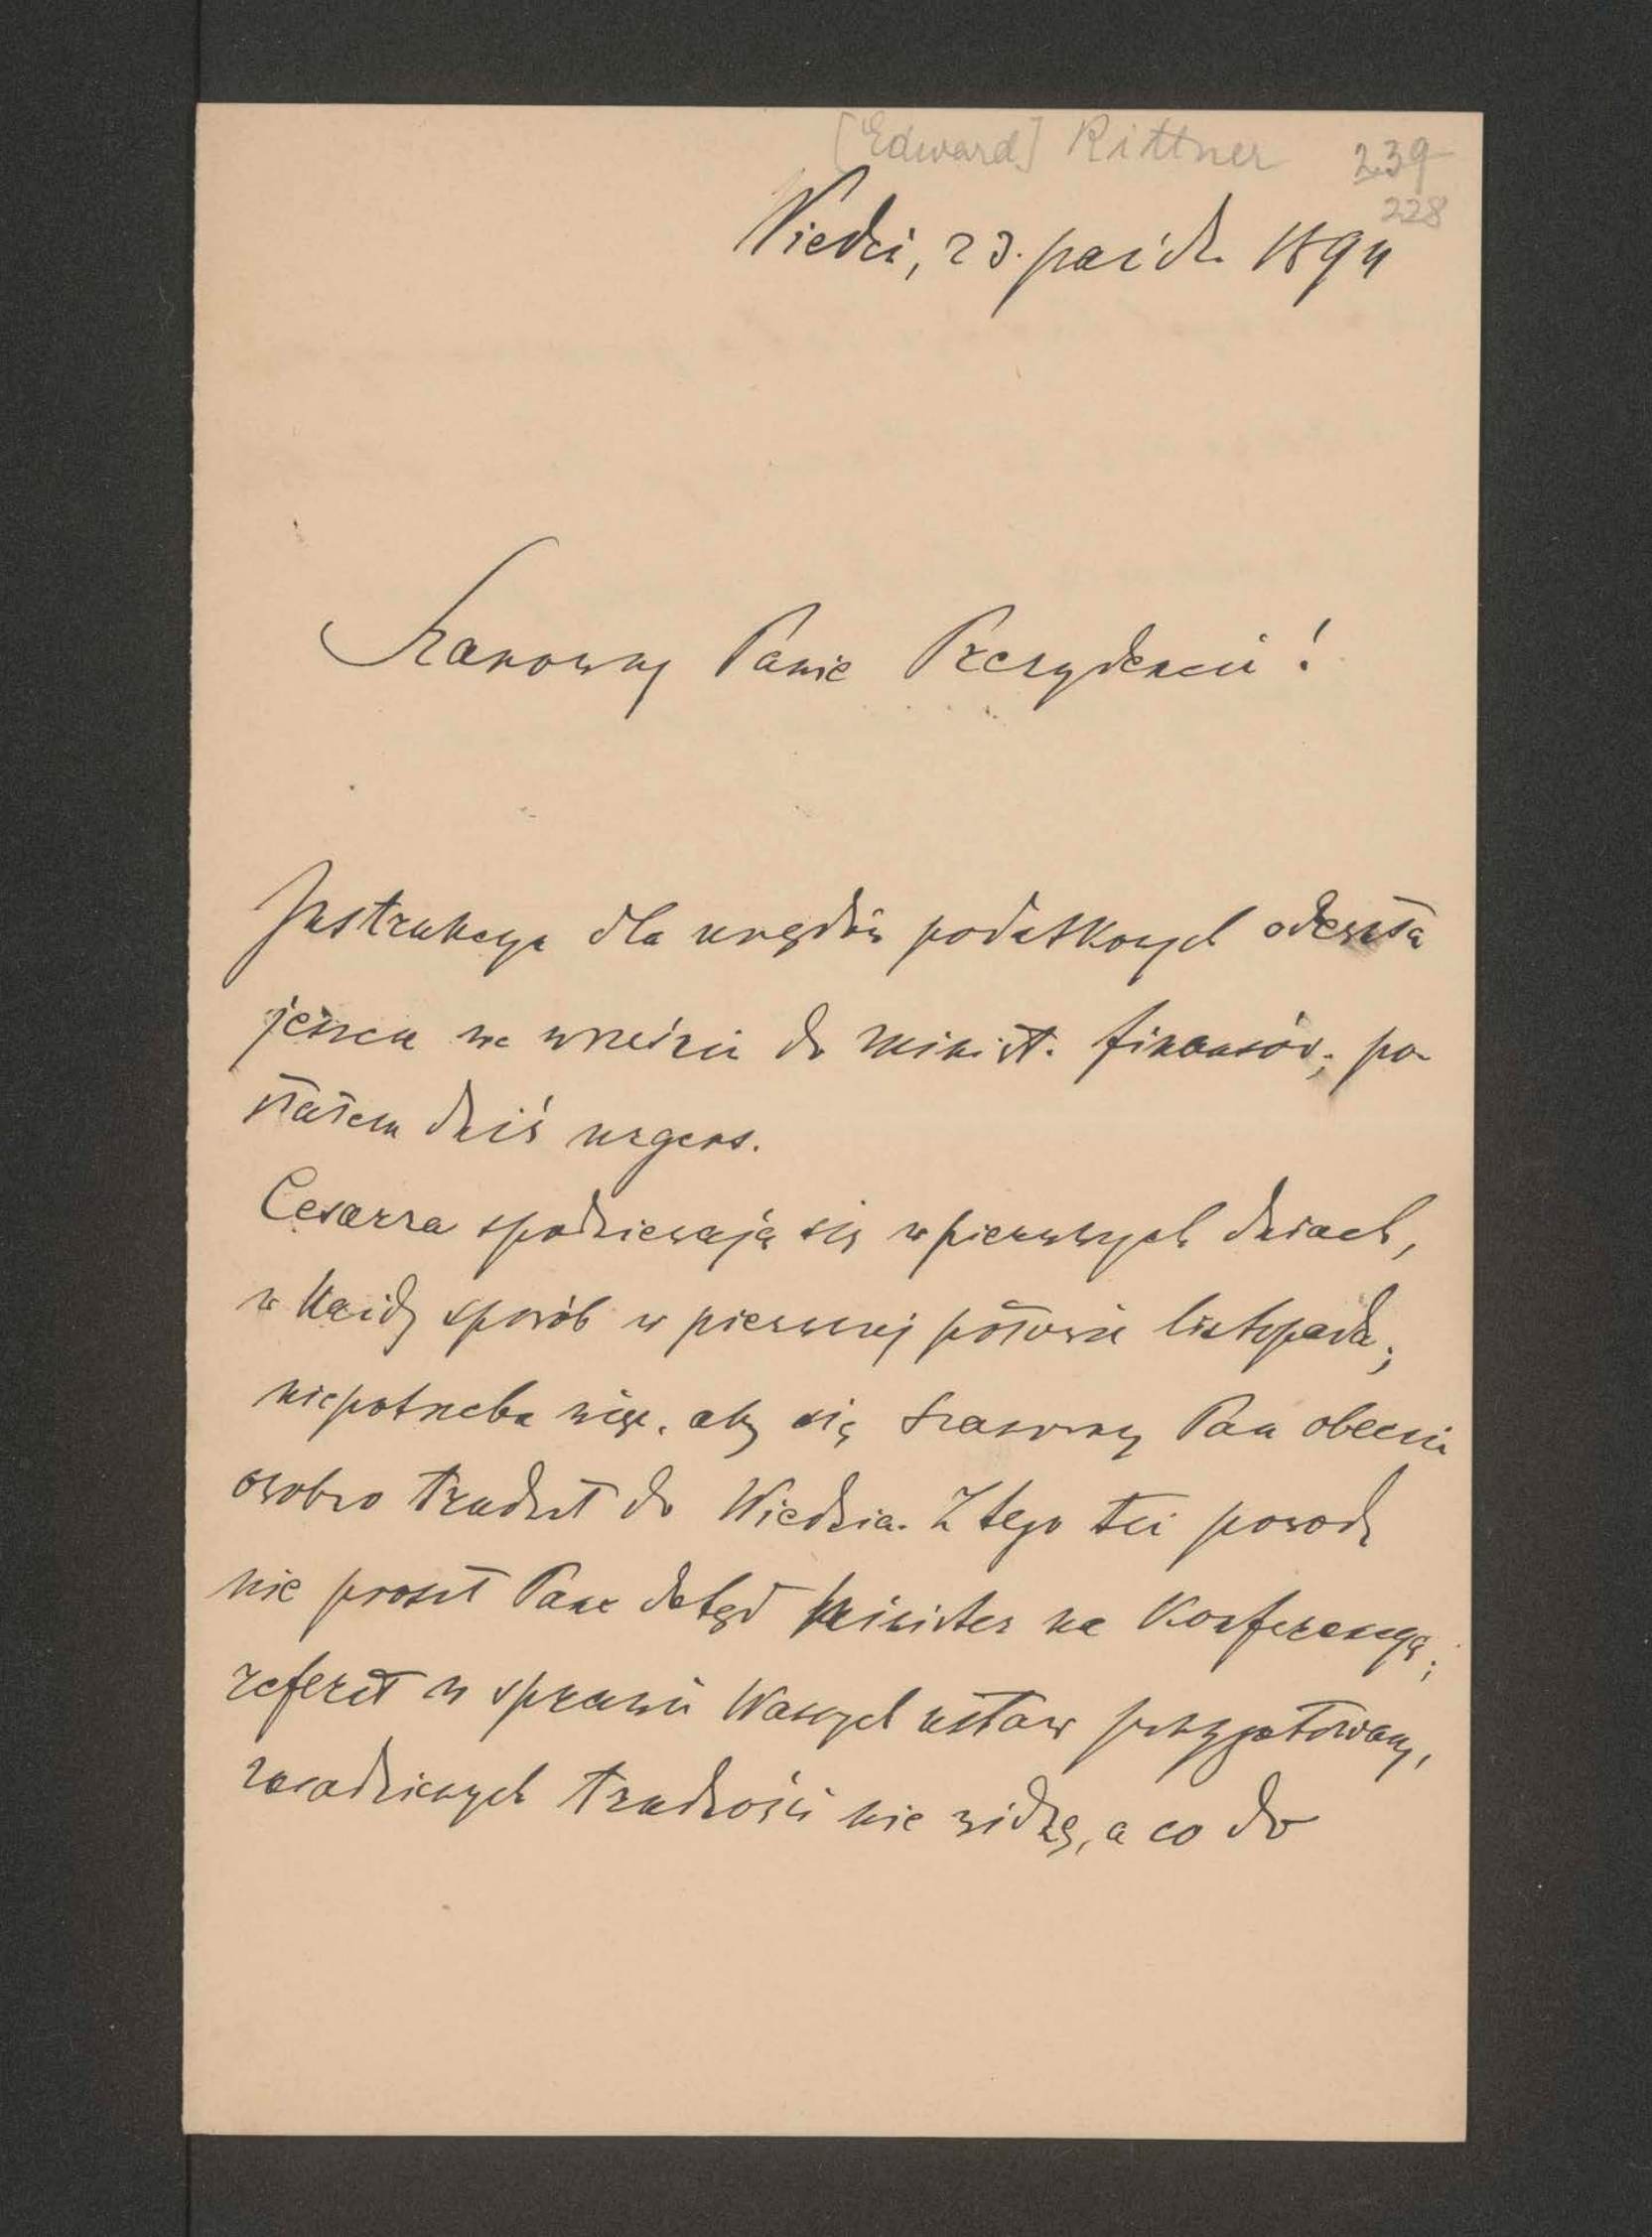 [Edward] Rittner 239
228
Wiedeń, 23. paźdz. 1894
Szanowny Panie Prezydencie!
Instrukcya dla urzędów podatkowych odeszła
jeszcze we wrześniu do minist. finansów; po-
słałem dziś urgens.
Cesarza spodziewają się w pierwszych dniach,
w każdy sposób w pierwszej połowie listopada;
niepotrzeba więc, aby się Szanowny Pan obecnie
osobno trudził do Wiednia. Z tego też powodu
nie prosił Pana dotąd Minister na Konferencyę;
referat w sprawie Waszych ustaw przygotowany,
zasadniczych trudności nie widzę, a co do